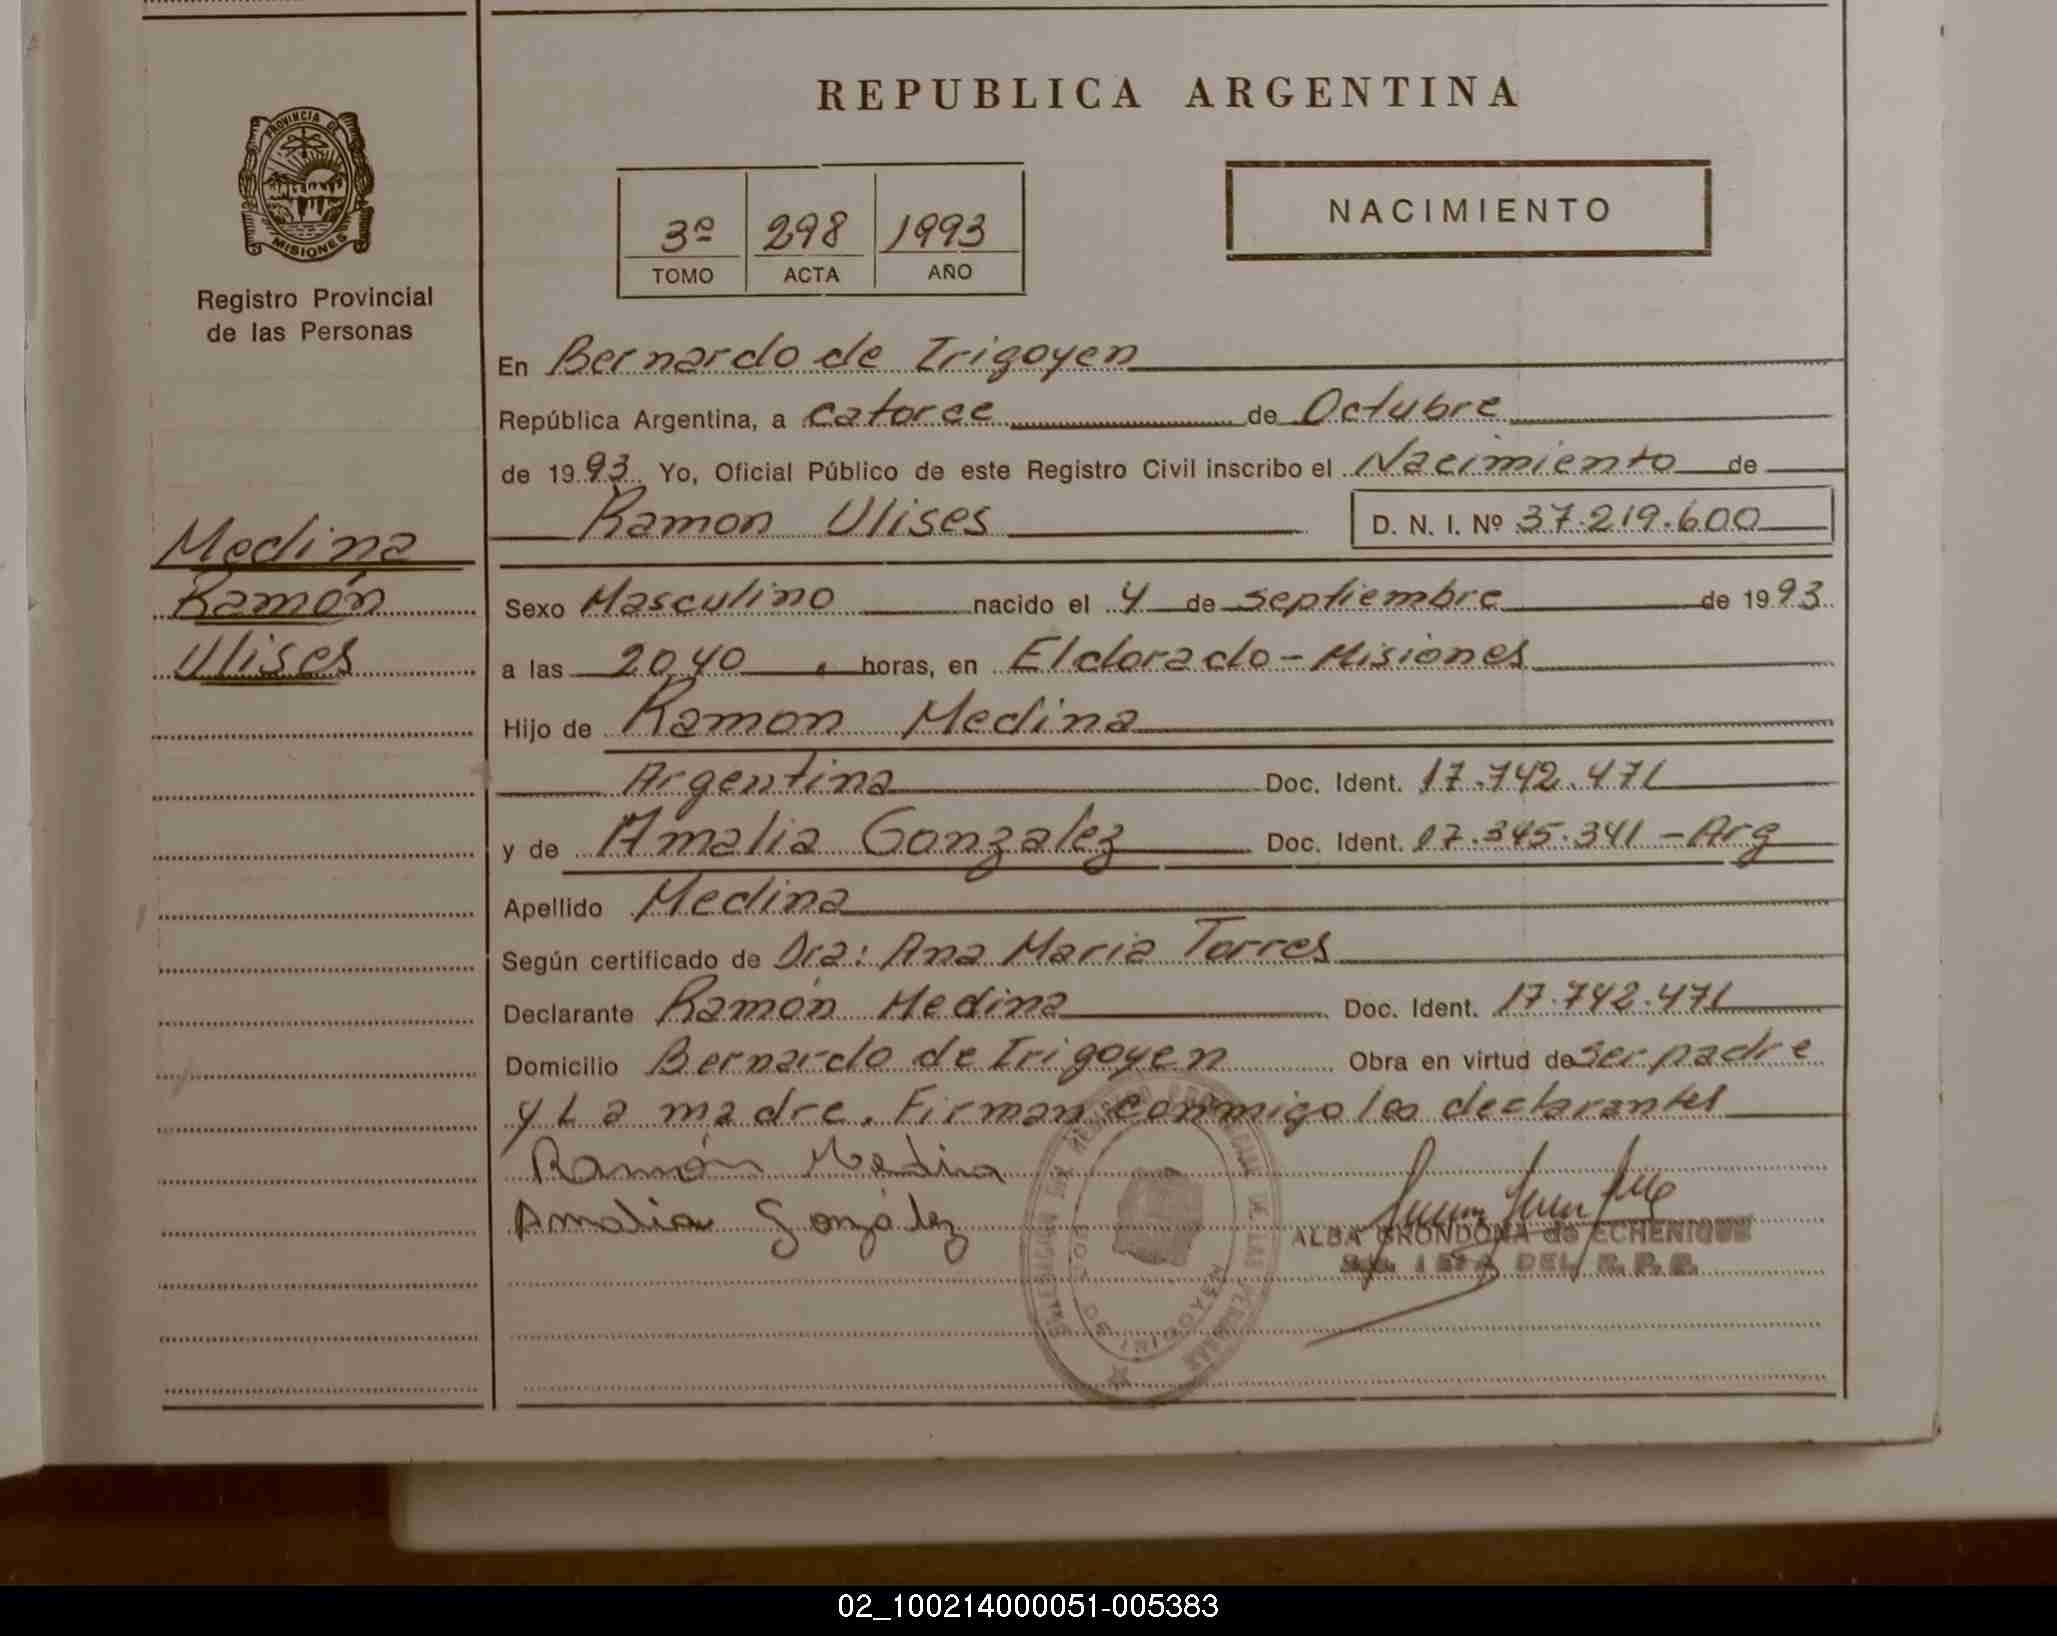 REPUBLICA ARGENTINA
PROVINCIA DE
MISIONES
Registro Provincial
de las Personas
3º 298 1993
TOMO ACTA AÑO
NACIMIENTO
Medina
Ramón
Ulises
En Bernardo de Irigoyen
República Argentina, a catorce de Octubre
de 1993 Yo, Oficial Público de este Registro Civil inscribo el Nacimiento de
Ramon Ulises D. N. I. Nº 37.219.600
Sexo Masculino nacido el 4 de septiembre de 1993
a las 20,40 horas, en Eldorado - Misiones
Hijo de Ramon Medina
Argentina Doc. Ident. 17.742.471
y de Amalia Gonzalez Doc. Ident. 17.345.341 - Arg
Apellido Medina
Según certificado de Dra: Ana Maria Torres
Declarante Ramón Medina Doc. Ident. 17.742.471
Domicilio Bernardo de Irigoyen Obra en virtud de ser padre
y La madre. Firman conmigo los declarantes
Ramón Medina
Amalia González
ALBA GRONDONA de ECHENIQUE
DEL R. P. P.
02_100214000051-005383